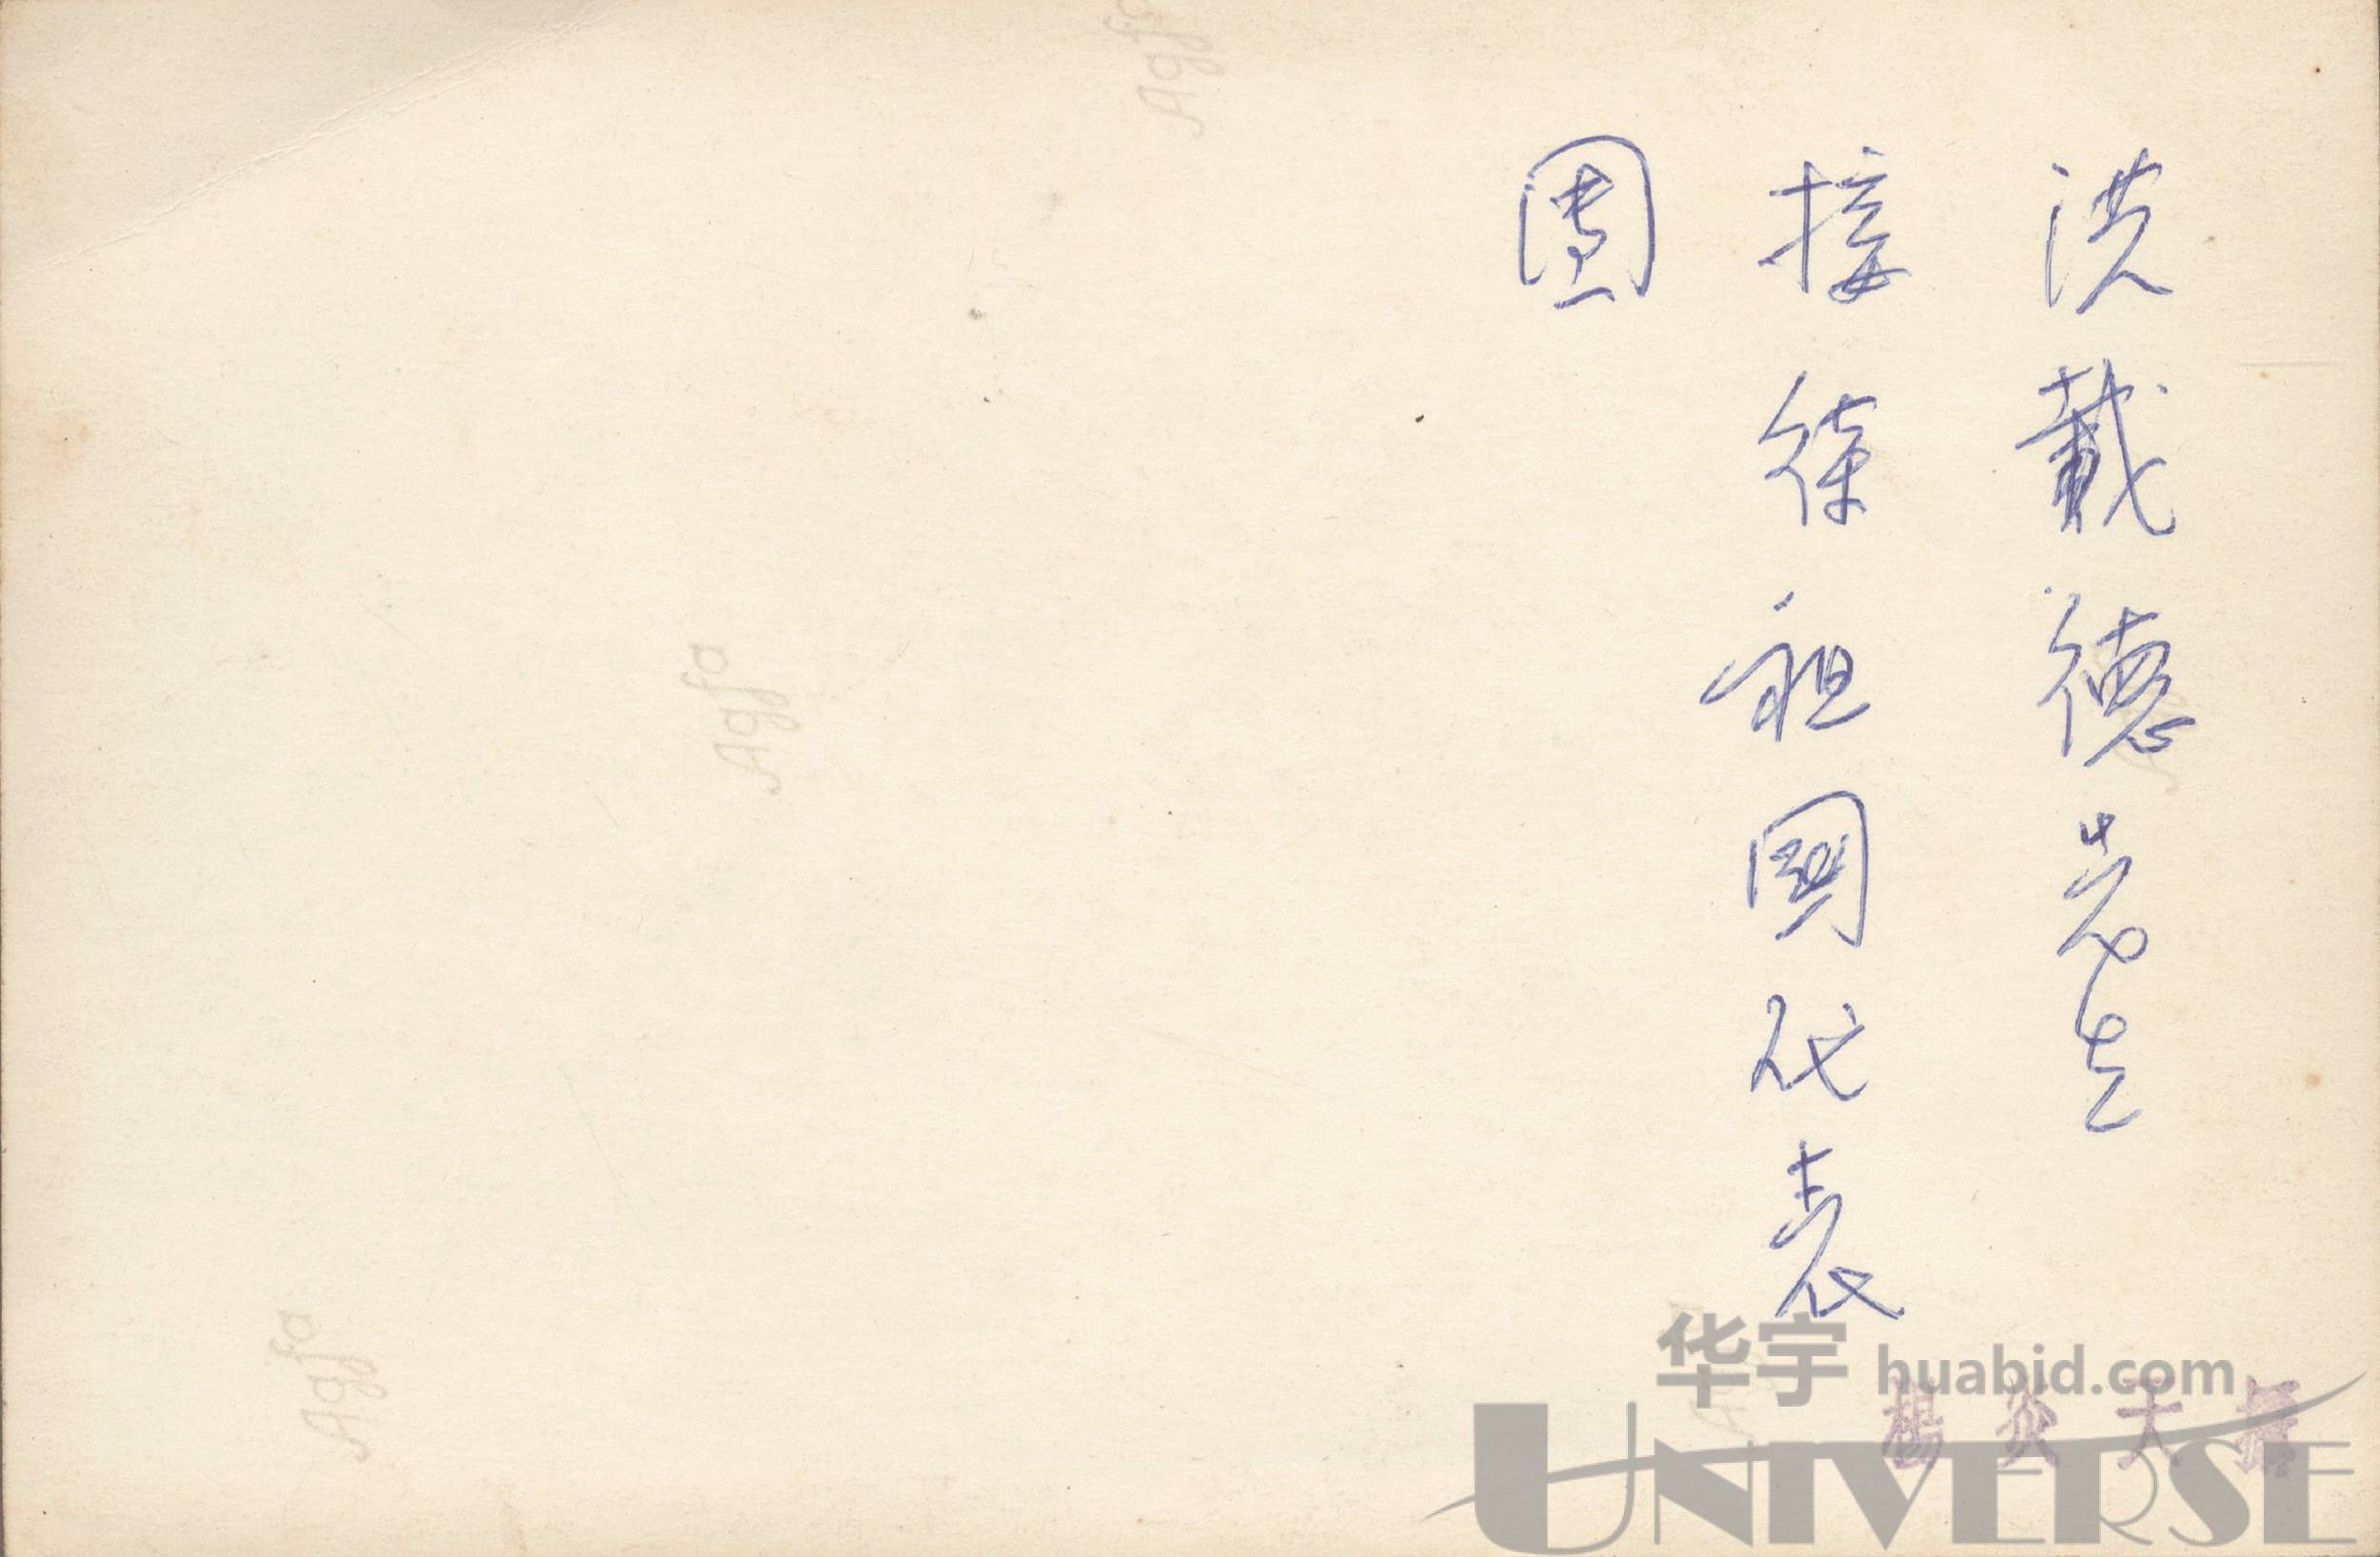 洪載德先生
接待祖國代表
團
Agfa
Agfa
Agfa
华宇 huabid.com
UNIVERSE